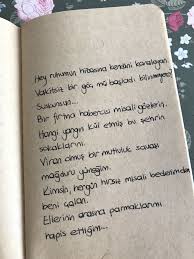 Hey ruhumun hibasına kendini karalayan
Vakitsiz bir göç mü başladı bilinmeyene?
Suskunsun...
Bir fırtına habercisi misali gözlerin.
Hangi yangın kül etmiş bu şehrin
sokaklarını.
Viran olmuş bir mutluluk savaşı
mağduru yüreğim.
Kimsin, hergün hırsız misali bedenimden
beni çalan.
Ellerinin arasına parmaklarımı
hapis ettiğim...